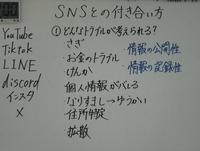 SNSとの付き合い方
YouTube
Tiktok
LINE
discord
インスタ
X
①どんなトラブルが考えられる？
さぎ
お金のトラブル
けんか
個人情報がバレる
なりすまし→ゆうかい
住所特定
拡散
情報の公開性
情報の記録性